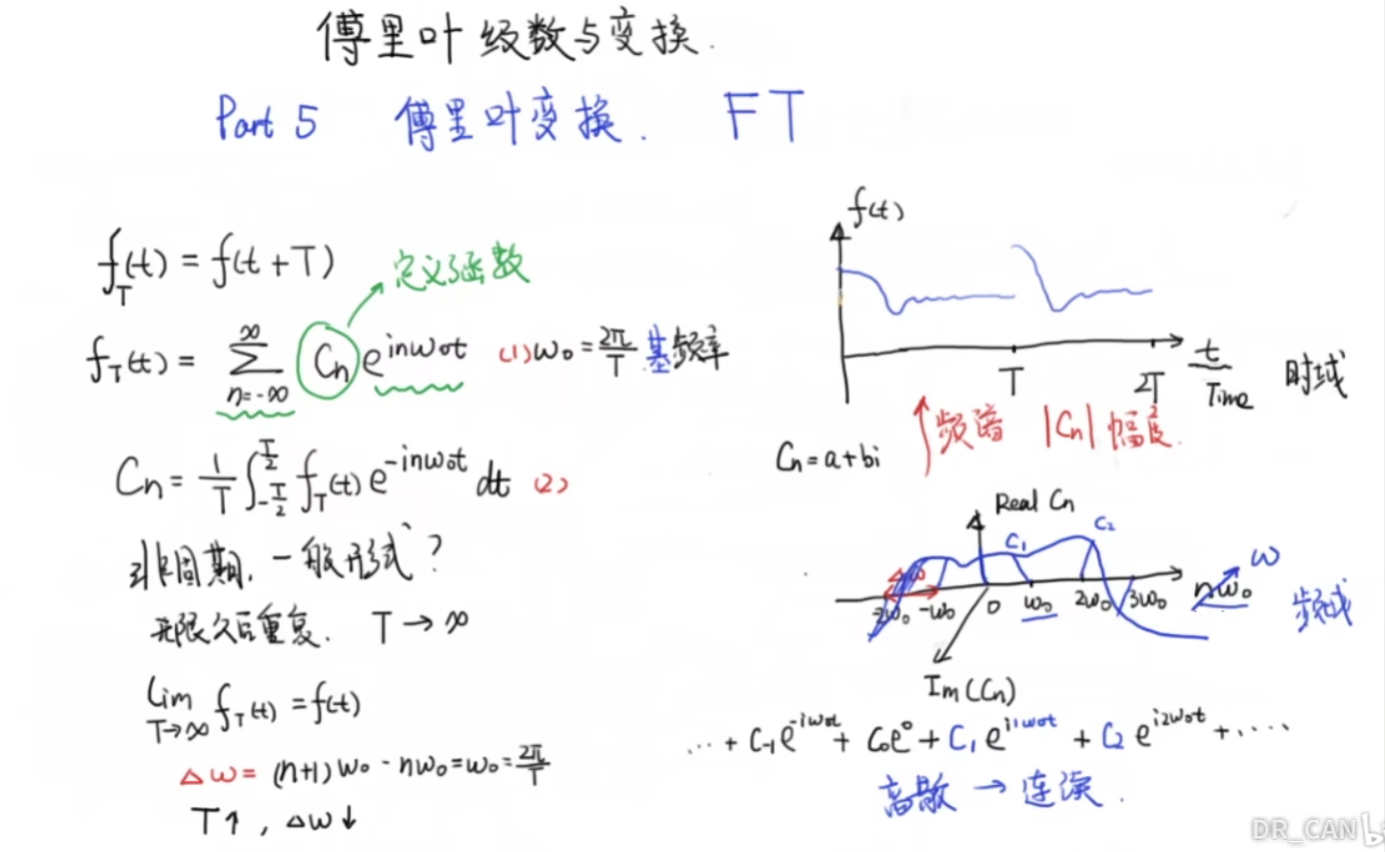 傅里叶级数与变换.
Part 5 傅里叶变换. FT
f_T(t) = f(t+T)
定义了函数
f_T(t) = ∑_{n=-∞}^{∞} C_n e^{inω₀t} (1) ω₀ = 2π/T 基频率
C_n = 1/T ∫_{-T/2}^{T/2} f_T(t) e^{-inω₀t} dt (2)
非周期, 一般形式?
无限久后重复. T → ∞
lim_{T→∞} f_T(t) = f(t)
Δω = (n+1)ω₀ - nω₀ = ω₀ = 2π/T
T↑, Δω↓
f(t)
T 2T t Time 时域
↑频谱 |Cn| 幅度.
Cn = a+bi
Real Cn
C₁ C₂
Δω
-2ω₀ -ω₀ 0 ω₀ 2ω₀ 3ω₀ nω₀ ω 频域
Im(Cn)
… + C₋₁e^{-iω₀t} + C₀e⁰ + C₁e^{i1ω₀t} + C₂e^{i2ω₀t} + ‥‥
离散 → 连续.
DR_CAN